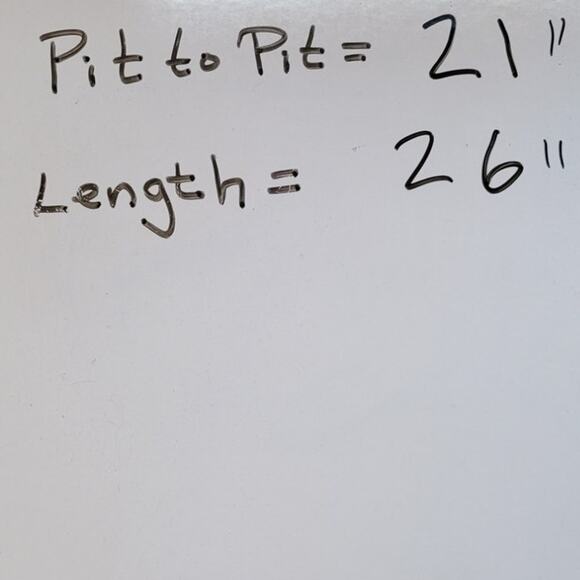 Pit to Pit = 21"
Length = 26"